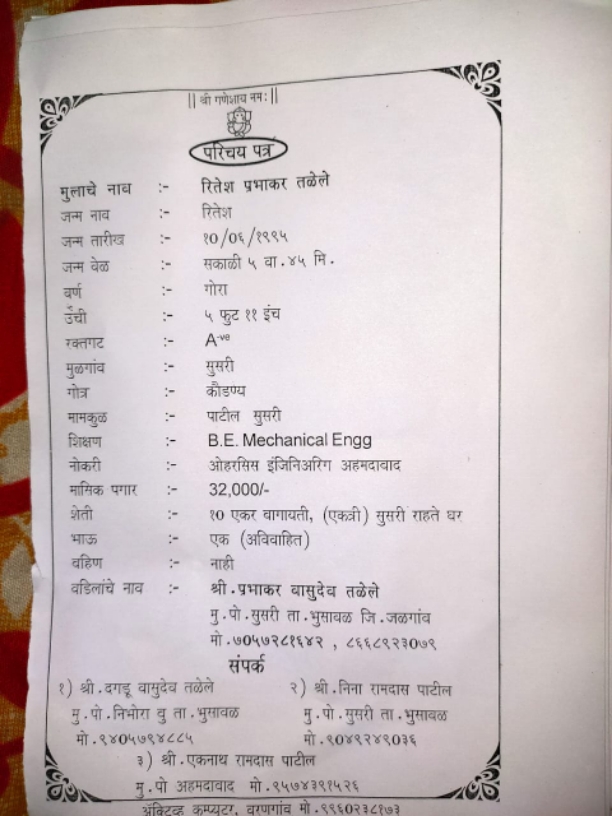 || श्री गणेशाय नमः ||
परिचय पत्र
मुलाचे नाव :- रितेश प्रभाकर तळेले
जन्म नाव :- रितेश
जन्म तारीख :- १०/०६/१९९५
जन्म वेळ :- सकाळी ५ वा.४५ मि.
वर्ण :- गोरा
उंची :- ५ फुट ११ इंच
रक्तगट :- A-ve
मुळगांव :- सुसरी
गोत्र :- कौडण्य
मामकुळ :- पाटील सुसरी
शिक्षण :- B.E. Mechanical Engg
नोकरी :- ओहरसिस इंजिनिअरिंग अहमदावाद
मासिक पगार :- 32,000/-
शेती :- १० एकर वागायती, (एकत्री) सुसरी राहते घर
भाऊ :- एक (अविवाहित)
वहिण :- नाही
वडिलांचे नाव :- श्री.प्रभाकर वासुदेव तळेले
मु.पो.सुसरी ता.भुसावळ जि.जळगांव
मो.७०५७२८१६४२ , ८६६८९२३०७९
संपर्क
१) श्री.दगडू वासुदेव तळेले २) श्री.निना रामदास पाटील
मु.पो.निभोरा वु ता.भुसावळ मु.पो.सुसरी ता.भुसावळ
मो.९४०५७९४८८५ मो.९०४९२४९०३६
३) श्री.एकनाथ रामदास पाटील
मु.पो अहमदावाद मो.९५७४३९१५२६
ॲक्टिव्ह कम्प्युटर, वरणगांव मो.९९६०२३८१७३